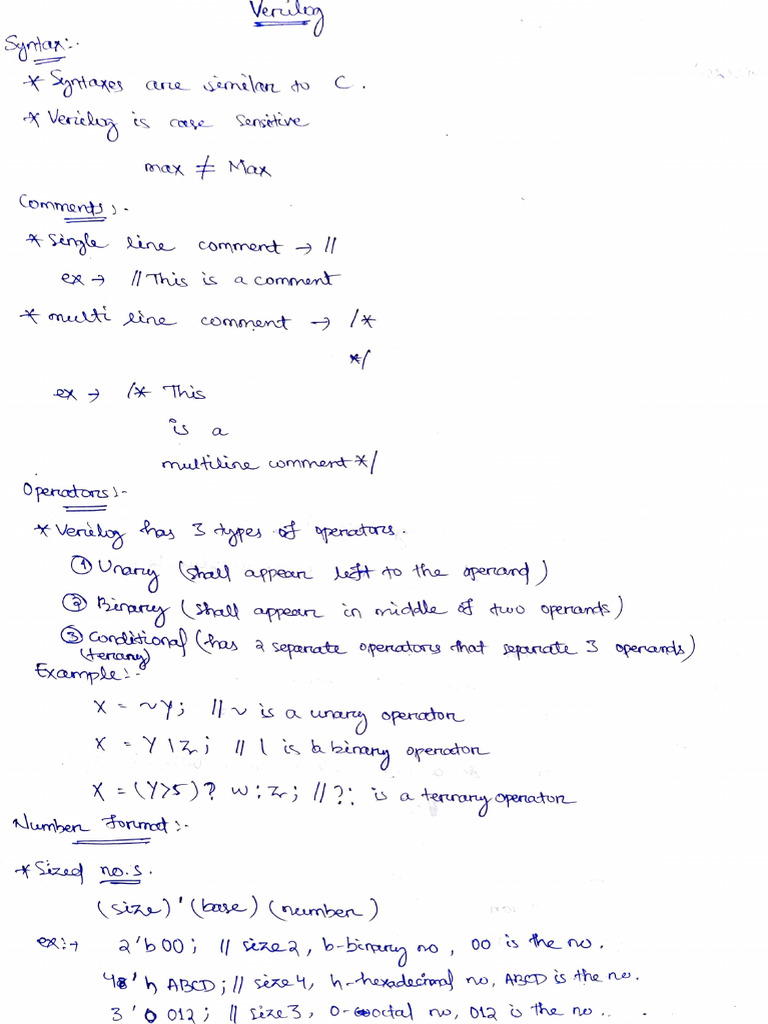 Verilog
Syntax:-
* Syntaxes are similar to C.
* Verilog is case sensitive
max ≠ Max
Comments:-
* Single line comment → //
ex → // This is a comment
* multi line comment → /*
*/
ex → /* This
is a
multiline comment */
Operators:-
* Verilog has 3 types of operators.
① Unary (shall appear left to the operand)
② Binary (shall appear in middle of two operands)
③ Conditional (has 2 separate operators that separate 3 operands)
(ternary)
Example:-
X = ~Y; // ~ is a unary operator
X = Y | Z; // | is a binary operator
X = (Y>5) ? W : Z; // ?: is a ternary operator
Number Format:-
* Sized no.s.
(size) ' (base) (number)
ex:→ 2'b 00; // size 2, b-binary no, 00 is the no.
4'h ABCD; // size 4, h-hexadecimal no, ABCD is the no.
3'o 012; // size 3, o-octal no, 012 is the no..